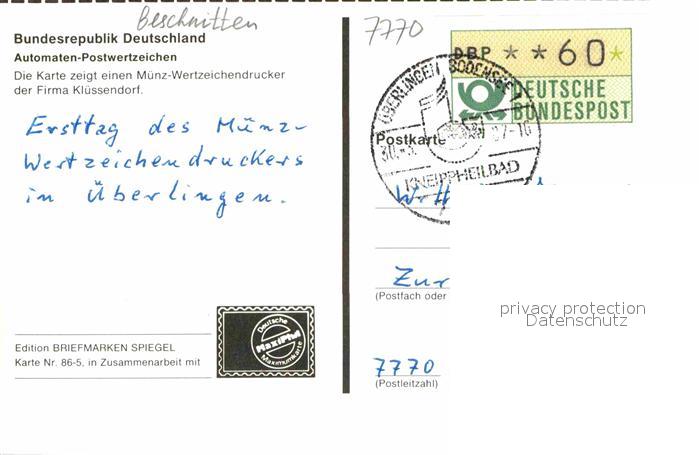 Beschnitten
7770
Bundesrepublik Deutschland
Automaten-Postwertzeichen
Die Karte zeigt einen Münz-Wertzeichendrucker
der Firma Klüssendorf.
Ersttag des Münz-
Wertzeichendruckers
in Überlingen.
Edition BRIEFMARKEN SPIEGEL
Karte Nr. 86-5, in Zusammenarbeit mit
Deutsche
MaxiPhil
Maximumkarte
DBP ✶ ✶ ✶ 60 ✶
DEUTSCHE
BUNDESPOST
ÜBERLINGEN BODENSEE
Postkarte
KNEIPPHEILBAD
Zur
(Postfach oder
privacy protection
Datenschutz
7770
(Postleitzahl)